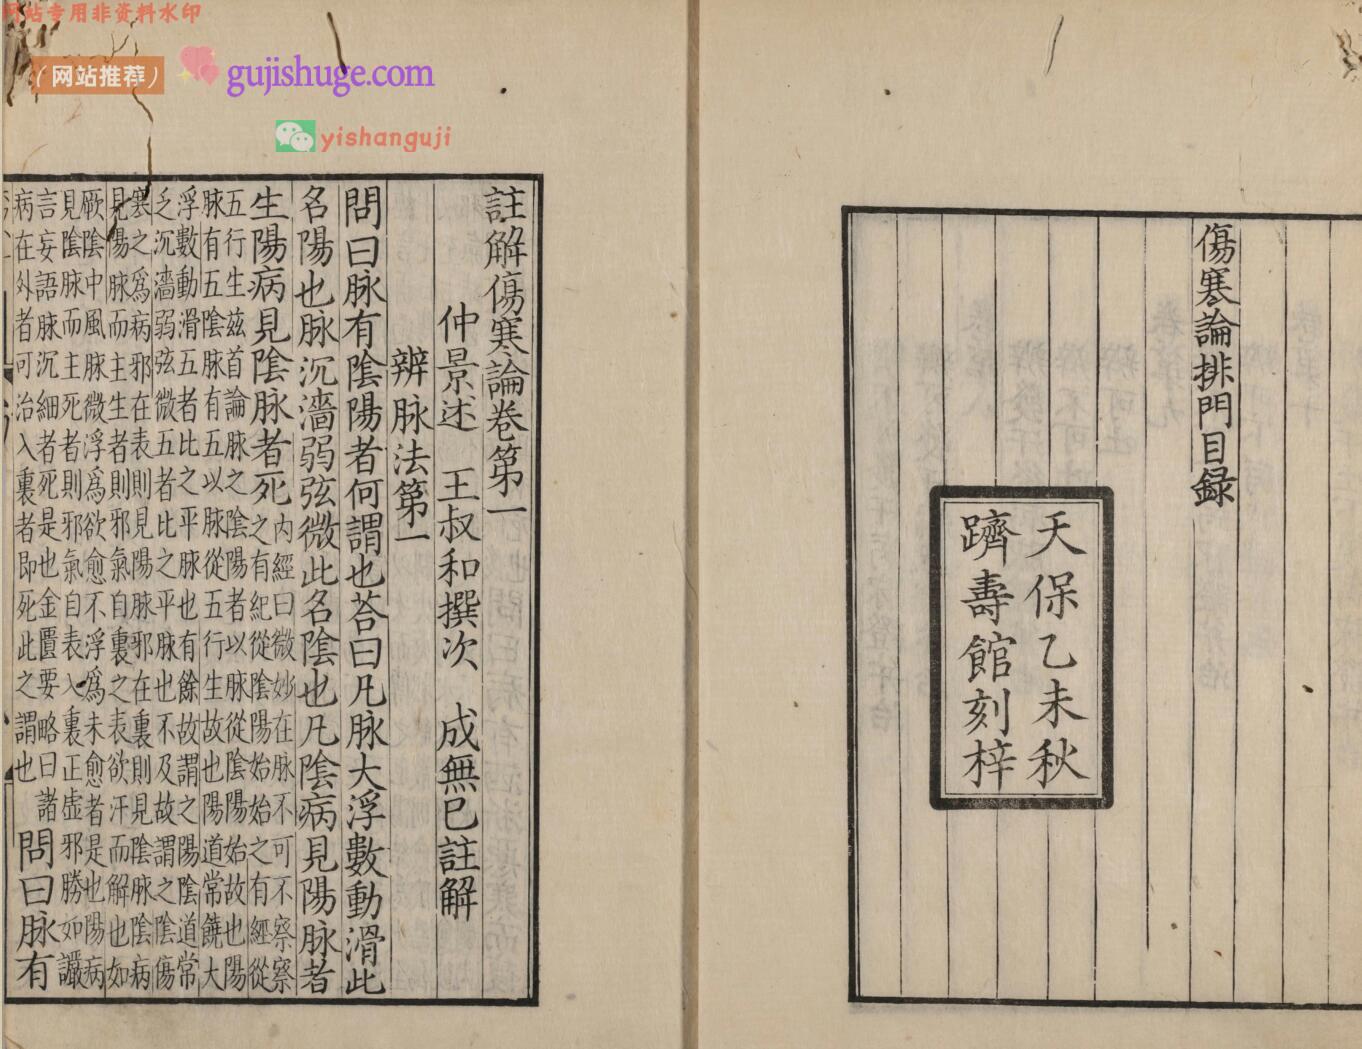 网站专用非资料水印
（网站推荐）
gujishuge.com
yishanguji
傷寒論排門目録
天保乙未秋
躋壽館刻梓
註解傷寒論卷第一
仲景述　王叔和撰次　成無已註解
辨脉法第一
問曰脉有陰陽者何謂也荅曰凡脉大浮數動滑此
名陽也脉沉濇弱弦微此名陰也凡陰病見陽脉者
生陽病見陰脉者死
内經曰微妙在脉不可不察察
之有紀從陰陽始始之有經從
五行生兹首論脉之陰陽者以脉從陰陽始故也陽
脉有五陰脉有五以脉從五行生故也陽道常饒大
浮數動滑五者比之平脉也有餘故謂之陽陰道常
乏沉濇弱弦微五者比之平脉也不及故謂之陰傷
寒之爲病邪在表則見陽脉邪在裏則見陰脉陰病
見陽脉而主生者則邪氣自裏之表欲汗而解也如
厥陰中風脉微浮爲欲愈不浮爲未愈者是也陽病
見陰脉而主死者則邪氣自表入裏正虛邪勝如讝
言妄語脉沉細者死是也金匱要略曰諸
病在外者可治入裏者即死此之謂也
問曰脉有